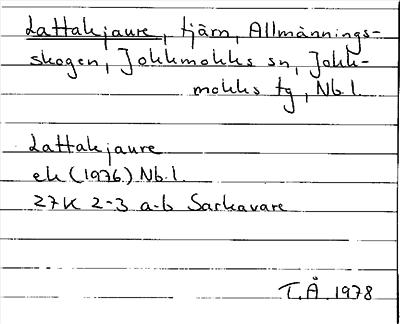 Lattakjaure, tjärn, Allmännings-
skogen, Jokkmokks sn, Jokk-
mokks tg, Nb.l.
Lattakjaure
ek (1976) Nb.l.
27K 2-3 a-b Sarkavare
T.Å. 1978